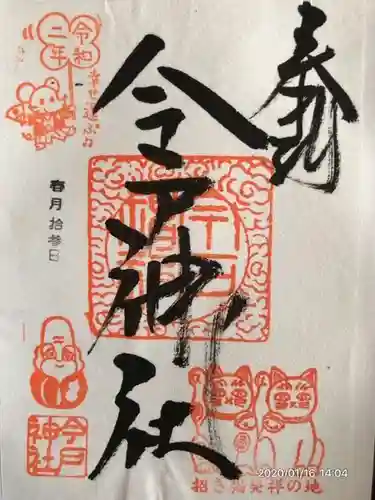 奉拝
今戸神社
令和
二年
幸せ運ぶ
春月拾参日
今戸
神社
招き猫発祥の地
2020/01/16 14:04